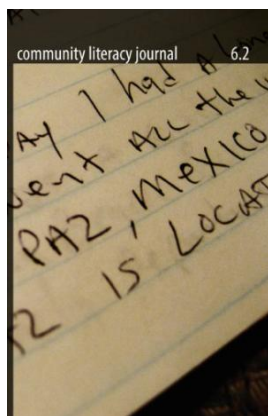 community literacy journal 6.2
AY I had A long
went ALL the
PAZ, MEXICO
AZ IS LOCAT